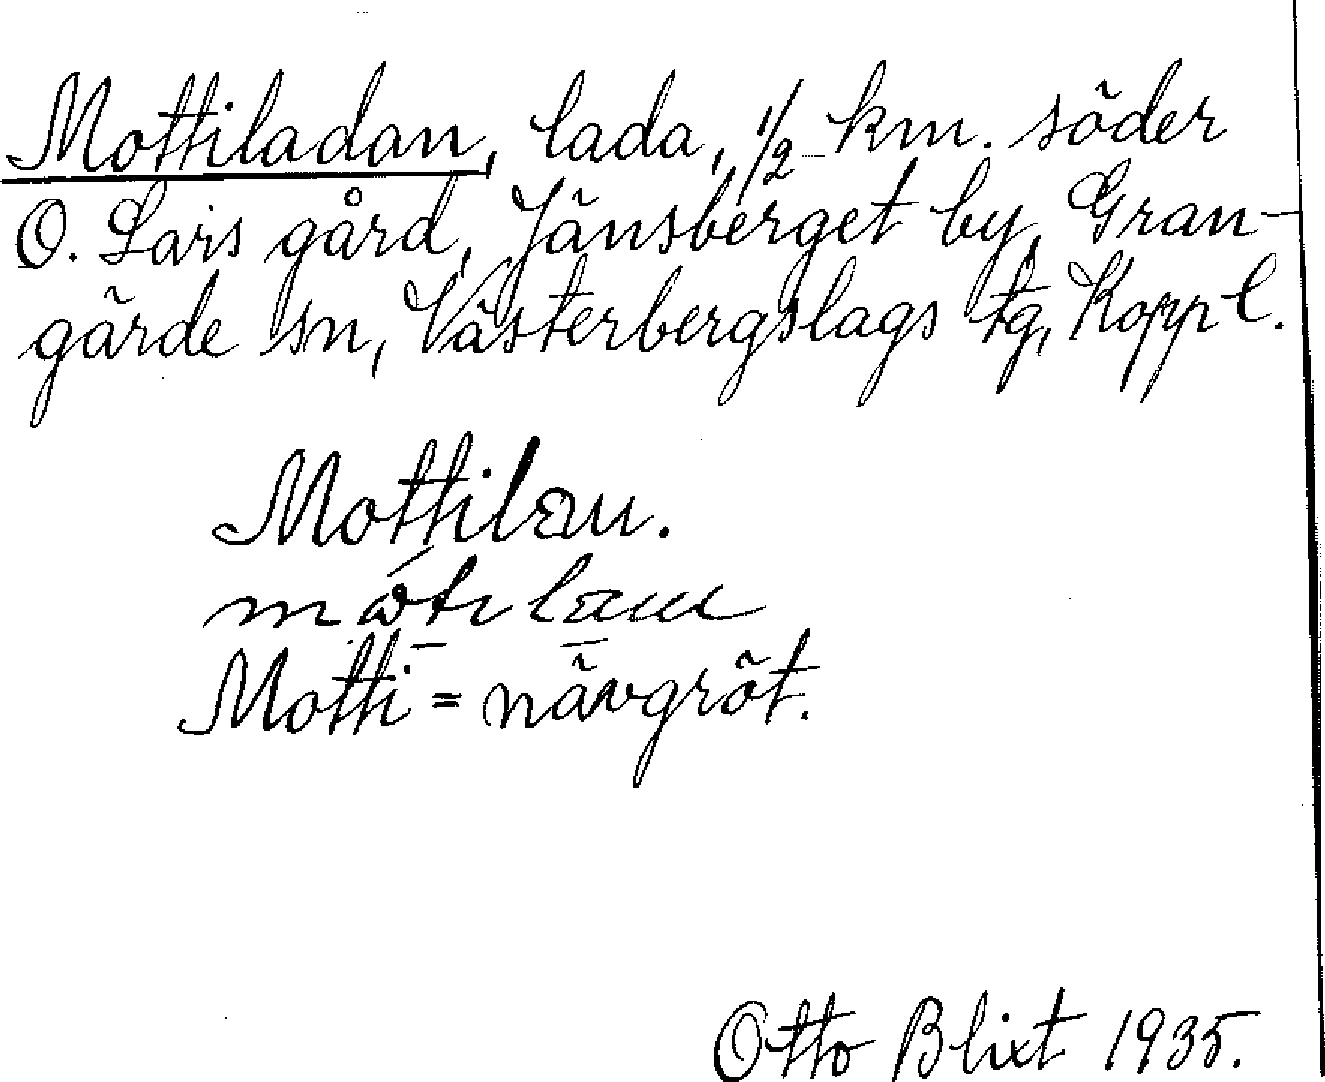 Mottiladan, lada, 1/2 km. söder
O. Lars gård, Jänsberget by, Gran-
gärde sn, Västerbergslags tg, Koppl.
Mottilan.
Motti = nävgröt.
Otto Blixt 1935.